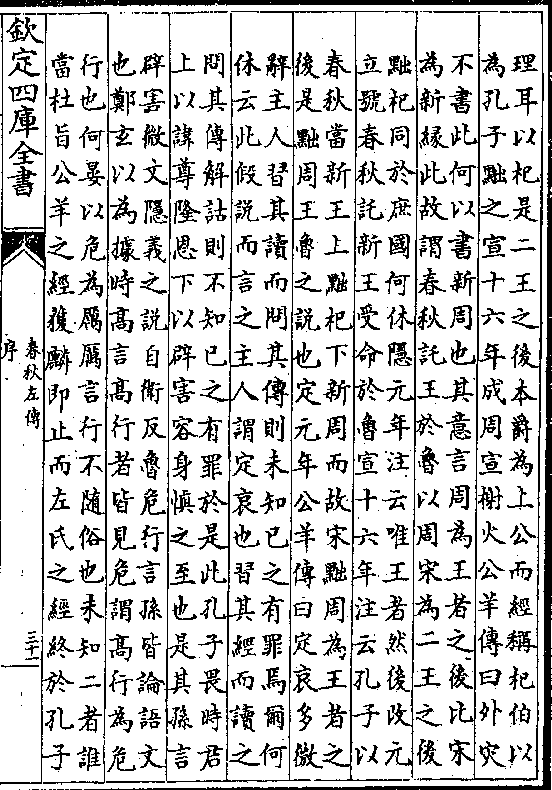 理耳以杞是二王之後本爵為上公而經稱杞伯以
為孔子黜之宣十六年成周宣榭火公羊傳曰外災
不書此何以書新周也其意言周為王者之後比宋
為新緣此故謂春秋託王於魯以周宋為二王之後
黜杞同於庶國何休隱元年注云唯王者然後改元
立號春秋託新王受命於魯宣十六年注云孔子以
春秋當新王上黜杞下新周而故宋黜周為王者之
後是黜周王魯之說也定元年公羊傳曰定哀多微
辭主人習其讀而問其傳則未知已之有罪焉爾何
休云此假說而言之主人謂定哀也習其經而讀之
問其傳解詁則不知已之有罪於是此孔子畏時君
上以諱尊隆恩下以辟害容身慎之至也是其孫言
辟害微文隱義之說自衛反魯危行言孫皆論語文
也鄭玄以為據時高言高行者皆見危謂高行為危
行也何晏以危為厲厲言行不隨俗也未知二者誰
當杜旨公羊之經獲麟即止而左氏之經終於孔子
欽定四庫全書
春秋左傳
序
三十一